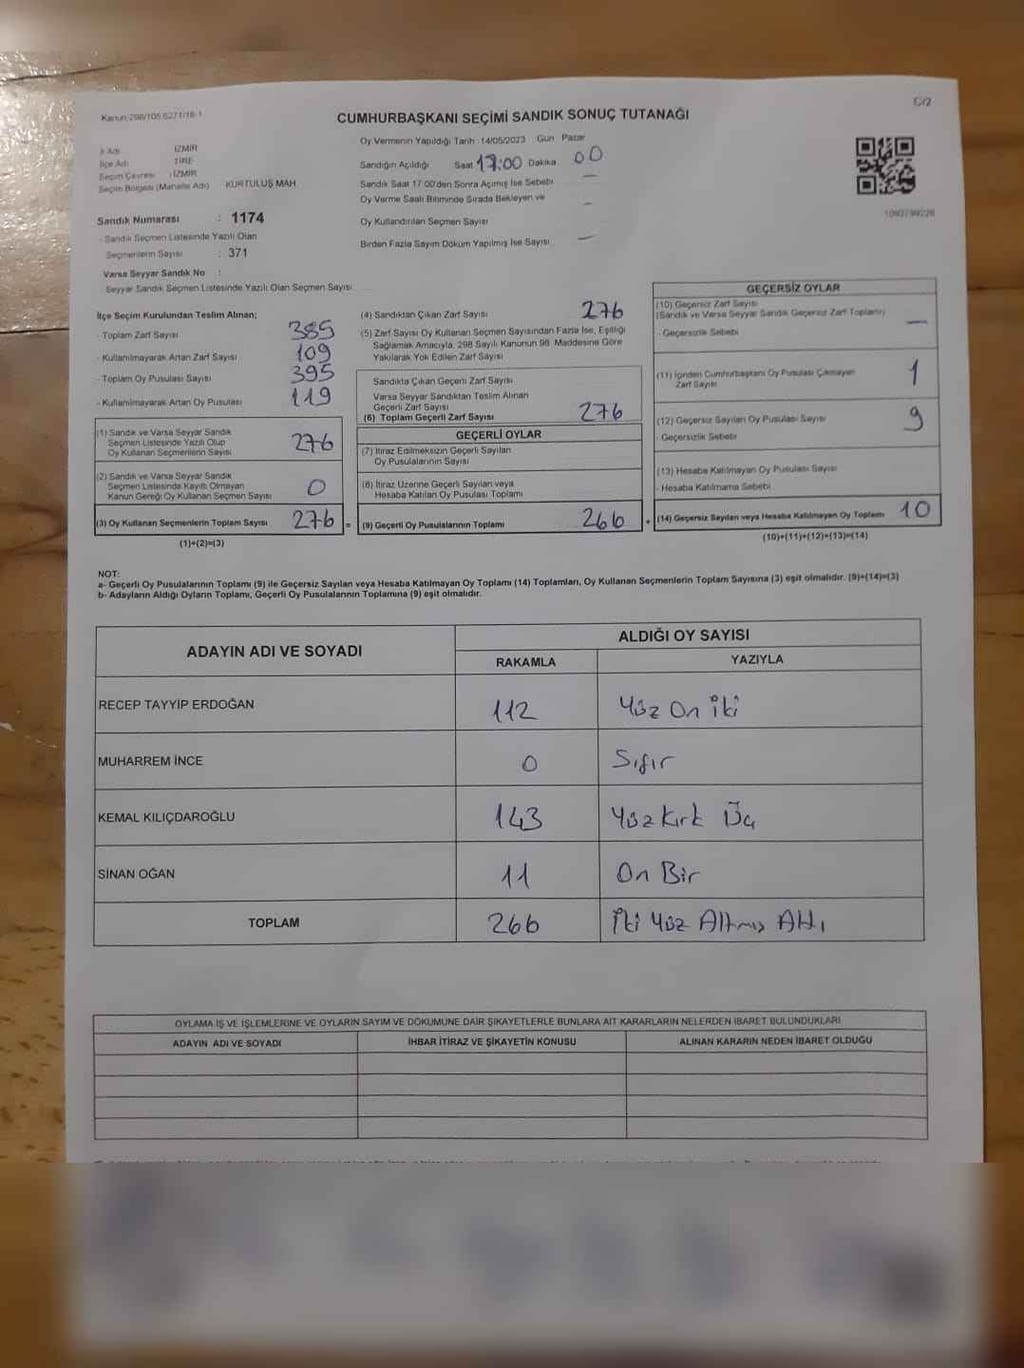 C/2
CUMHURBAŞKANI SEÇİMİ SANDIK SONUÇ TUTANAĞI
İl Adı İZMİR
İlçe Adı TİRE
Seçim Çevresi : İZMİR
Seçim Bölgesi (Mahalle Adı) KURTULUŞ MAH
Sandık Numarası : 1174
- Sandık Seçmen Listesinde Yazılı Olan
Seçmenlerin Sayısı : 371
Varsa Seyyar Sandık No :
Seyyar Sandık Seçmen Listesinde Yazılı Olan Seçmen Sayısı
Oy Vermenin Yapıldığı Tarih 14/05/2023 Gün Pazar
Sandığın Açıldığı Saat 17:00 Dakika 00
Sandık Saat 17:00'den Sonra Açımış İse Sebebi —
Oy Verme Saati Bitiminde Sırada Bekleyen ve —
Oy Kullandırılan Seçmen Sayısı
Birden Fazla Sayım Döküm Yapılmış İse Sayısı —
İlçe Seçim Kurulundan Teslim Alınan;
- Toplam Zarf Sayısı 385
- Kullanılmayarak Artan Zarf Sayısı 109
- Toplam Oy Pusulası Sayısı 395
- Kullanılmayarak Artan Oy Pusulası 119
(1) Sandık ve Varsa Seyyar Sandık
Seçmen Listesinde Yazılı Olup
Oy Kullanan Seçmenlerin Sayısı 276
(2) Sandık ve Varsa Seyyar Sandık
Seçmen Listesinde Kayıtlı Olmayan
Kanun Gereği Oy Kullanan Seçmen Sayısı 0
(3) Oy Kullanan Seçmenlerin Toplam Sayısı 276 =
(1)+(2)=(3)
(4) Sandıktan Çıkan Zarf Sayısı 276
(5) Zarf Sayısı Oy Kullanan Seçmen Sayısından Fazla İse, Eşitliği
Sağlamak Amacıyla, 298 Sayılı Kanunun 98. Maddesine Göre
Yakılarak Yok Edilen Zarf Sayısı
Sandıkta Çıkan Geçerli Zarf Sayısı
Varsa Seyyar Sandıktan Teslim Alınan
Geçerli Zarf Sayısı
(6) Toplam Geçerli Zarf Sayısı 276
GEÇERLİ OYLAR
(7) İtiraz Edilmeksizin Geçerli Sayılan
Oy Pusulalarının Sayısı
(8) İtiraz Üzerine Geçerli Sayılan veya
Hesaba Katılan Oy Pusulası Toplamı
(9) Geçerli Oy Pusulalarının Toplamı 266 +
GEÇERSİZ OYLAR
(10) Geçersiz Zarf Sayısı
(Sandık ve Varsa Seyyar Sandık Geçersiz Zarf Toplamı) —
- Geçersizlik Sebebi
(11) İçinden Cumhurbaşkanı Oy Pusulası Çıkmayan
Zarf Sayısı 1
(12) Geçersiz Sayılan Oy Pusulası Sayısı 9
- Geçersizlik Sebebi
(13) Hesaba Katılmayan Oy Pusulası Sayısı
- Hesaba Katılmama Sebebi
(14) Geçersiz Sayılan veya Hesaba Katılmayan Oy Toplamı 10
(10)+(11)+(12)+(13)=(14)
NOT:
a- Geçerli Oy Pusulalarının Toplamı (9) ile Geçersiz Sayılan veya Hesaba Katılmayan Oy Toplamı (14) Toplamları, Oy Kullanan Seçmenlerin Toplam Sayısına (3) eşit olmalıdır. (9)+(14)=(3)
b- Adayların Aldığı Oyların Toplamı, Geçerli Oy Pusulalarının Toplamına (9) eşit olmalıdır.
ADAYIN ADI VE SOYADI
ALDIĞI OY SAYISI
RAKAMLA YAZIYLA
RECEP TAYYİP ERDOĞAN 112 Yüz On iki
MUHARREM İNCE 0 Sıfır
KEMAL KILIÇDAROĞLU 143 Yüz Kırk Üç
SİNAN OĞAN 11 On Bir
TOPLAM 266 İki Yüz Altmış Altı
OYLAMA İŞ VE İŞLEMLERİNE VE OYLARIN SAYIM VE DÖKÜMÜNE DAİR ŞİKAYETLERLE BUNLARA AİT KARARLARIN NELERDEN İBARET BULUNDUKLARI
ADAYIN ADI VE SOYADI İHBAR İTİRAZ VE ŞİKAYETİN KONUSU ALINAN KARARIN NEDEN İBARET OLDUĞU